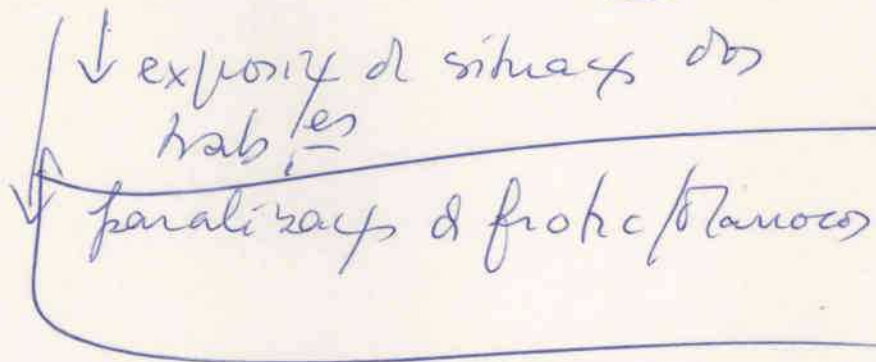 ↓ exposiç d situaç dos
trab/es
paralizaç d frota c/Marrocos